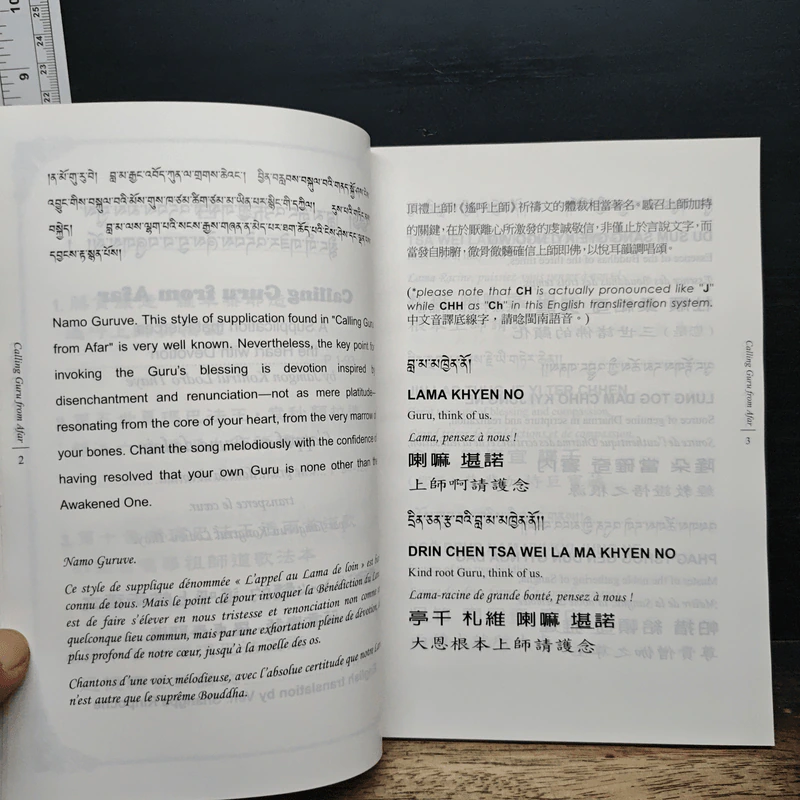 །ན་མོ་གུ་རུ་བེ། བླ་མ་རྒྱང་འབོད་ཀུན་ལ་གྲགས་ཆེའང་། བྱིན་བརླབས་བསྐུལ་བའི་གནད་སྐྱོ་ཤས་ངེས་
འབྱུང་གིས་བསྐུལ་བའི་མོས་གུས་ཁ་ཙམ་ཚིག་ཙམ་མ་ཡིན་པར་སྙིང་གི་དཀྱིལ། རུས་པའི་གཏིང་ནས་
བསྐྱེད། བླ་མ་ལས་ལྷག་པའི་སངས་རྒྱས་གཞན་ན་མེད་པར་ཐག་ཆོད་པའི་ངེས་ཤེས་དང་ལྡན་པས་
དབྱངས་རྟ་སྙན་པོས།
Namo Guruve. This style of supplication found in "Calling Guru
from Afar" is very well known. Nevertheless, the key point for
invoking the Guru's blessing is devotion inspired by
disenchantment and renunciation—not as mere platitude—
resonating from the core of your heart, from the very marrow of
your bones. Chant the song melodiously with the confidence of
having resolved that your own Guru is none other than the
Awakened One.
Namo Guruve.
Ce style de supplique dénommée « L'appel au Lama de loin » est
connu de tous. Mais le point clé pour invoquer la Bénédiction du
est de faire s'élever en nous tristesse et renonciation non comme
quelconque lieu commun, mais par une exhortation pleine de dévotion,
plus profond de notre cœur, jusqu'à la moelle des os.
Chantons d'une voix mélodieuse, avec l'absolue certitude que notre
n'est autre que le suprême Bouddha.
Calling Guru from Afar
2
頂禮上師!《遙呼上師》祈禱文的體裁相當著名。感召上師加持
的關鍵,在於厭離心所激發的虔誠敬信,非僅止於言說文字,而
當發自肺腑,徹骨徹髓確信上師即佛,以悅耳韻調唱頌。
(*please note that CH is actually pronounced like "J"
while CHH as "Ch" in this English transliteration system.
中文音譯底線字,請唸閩南語音。)
བླ་མ་མཁྱེན་ནོ།
LAMA KHYEN NO
Guru, think of us.
Lama, pensez à nous !
喇嘛 堪諾
上師啊請護念
དྲིན་ཅན་རྩ་བའི་བླ་མ་མཁྱེན་ནོ།།
DRIN CHEN TSA WEI LA MA KHYEN NO
Kind root Guru, think of us.
Lama-racine de grande bonté, pensez à nous !
亭千 札維 喇嘛 堪諾
大恩根本上師請護念
Calling Guru from Afar
3